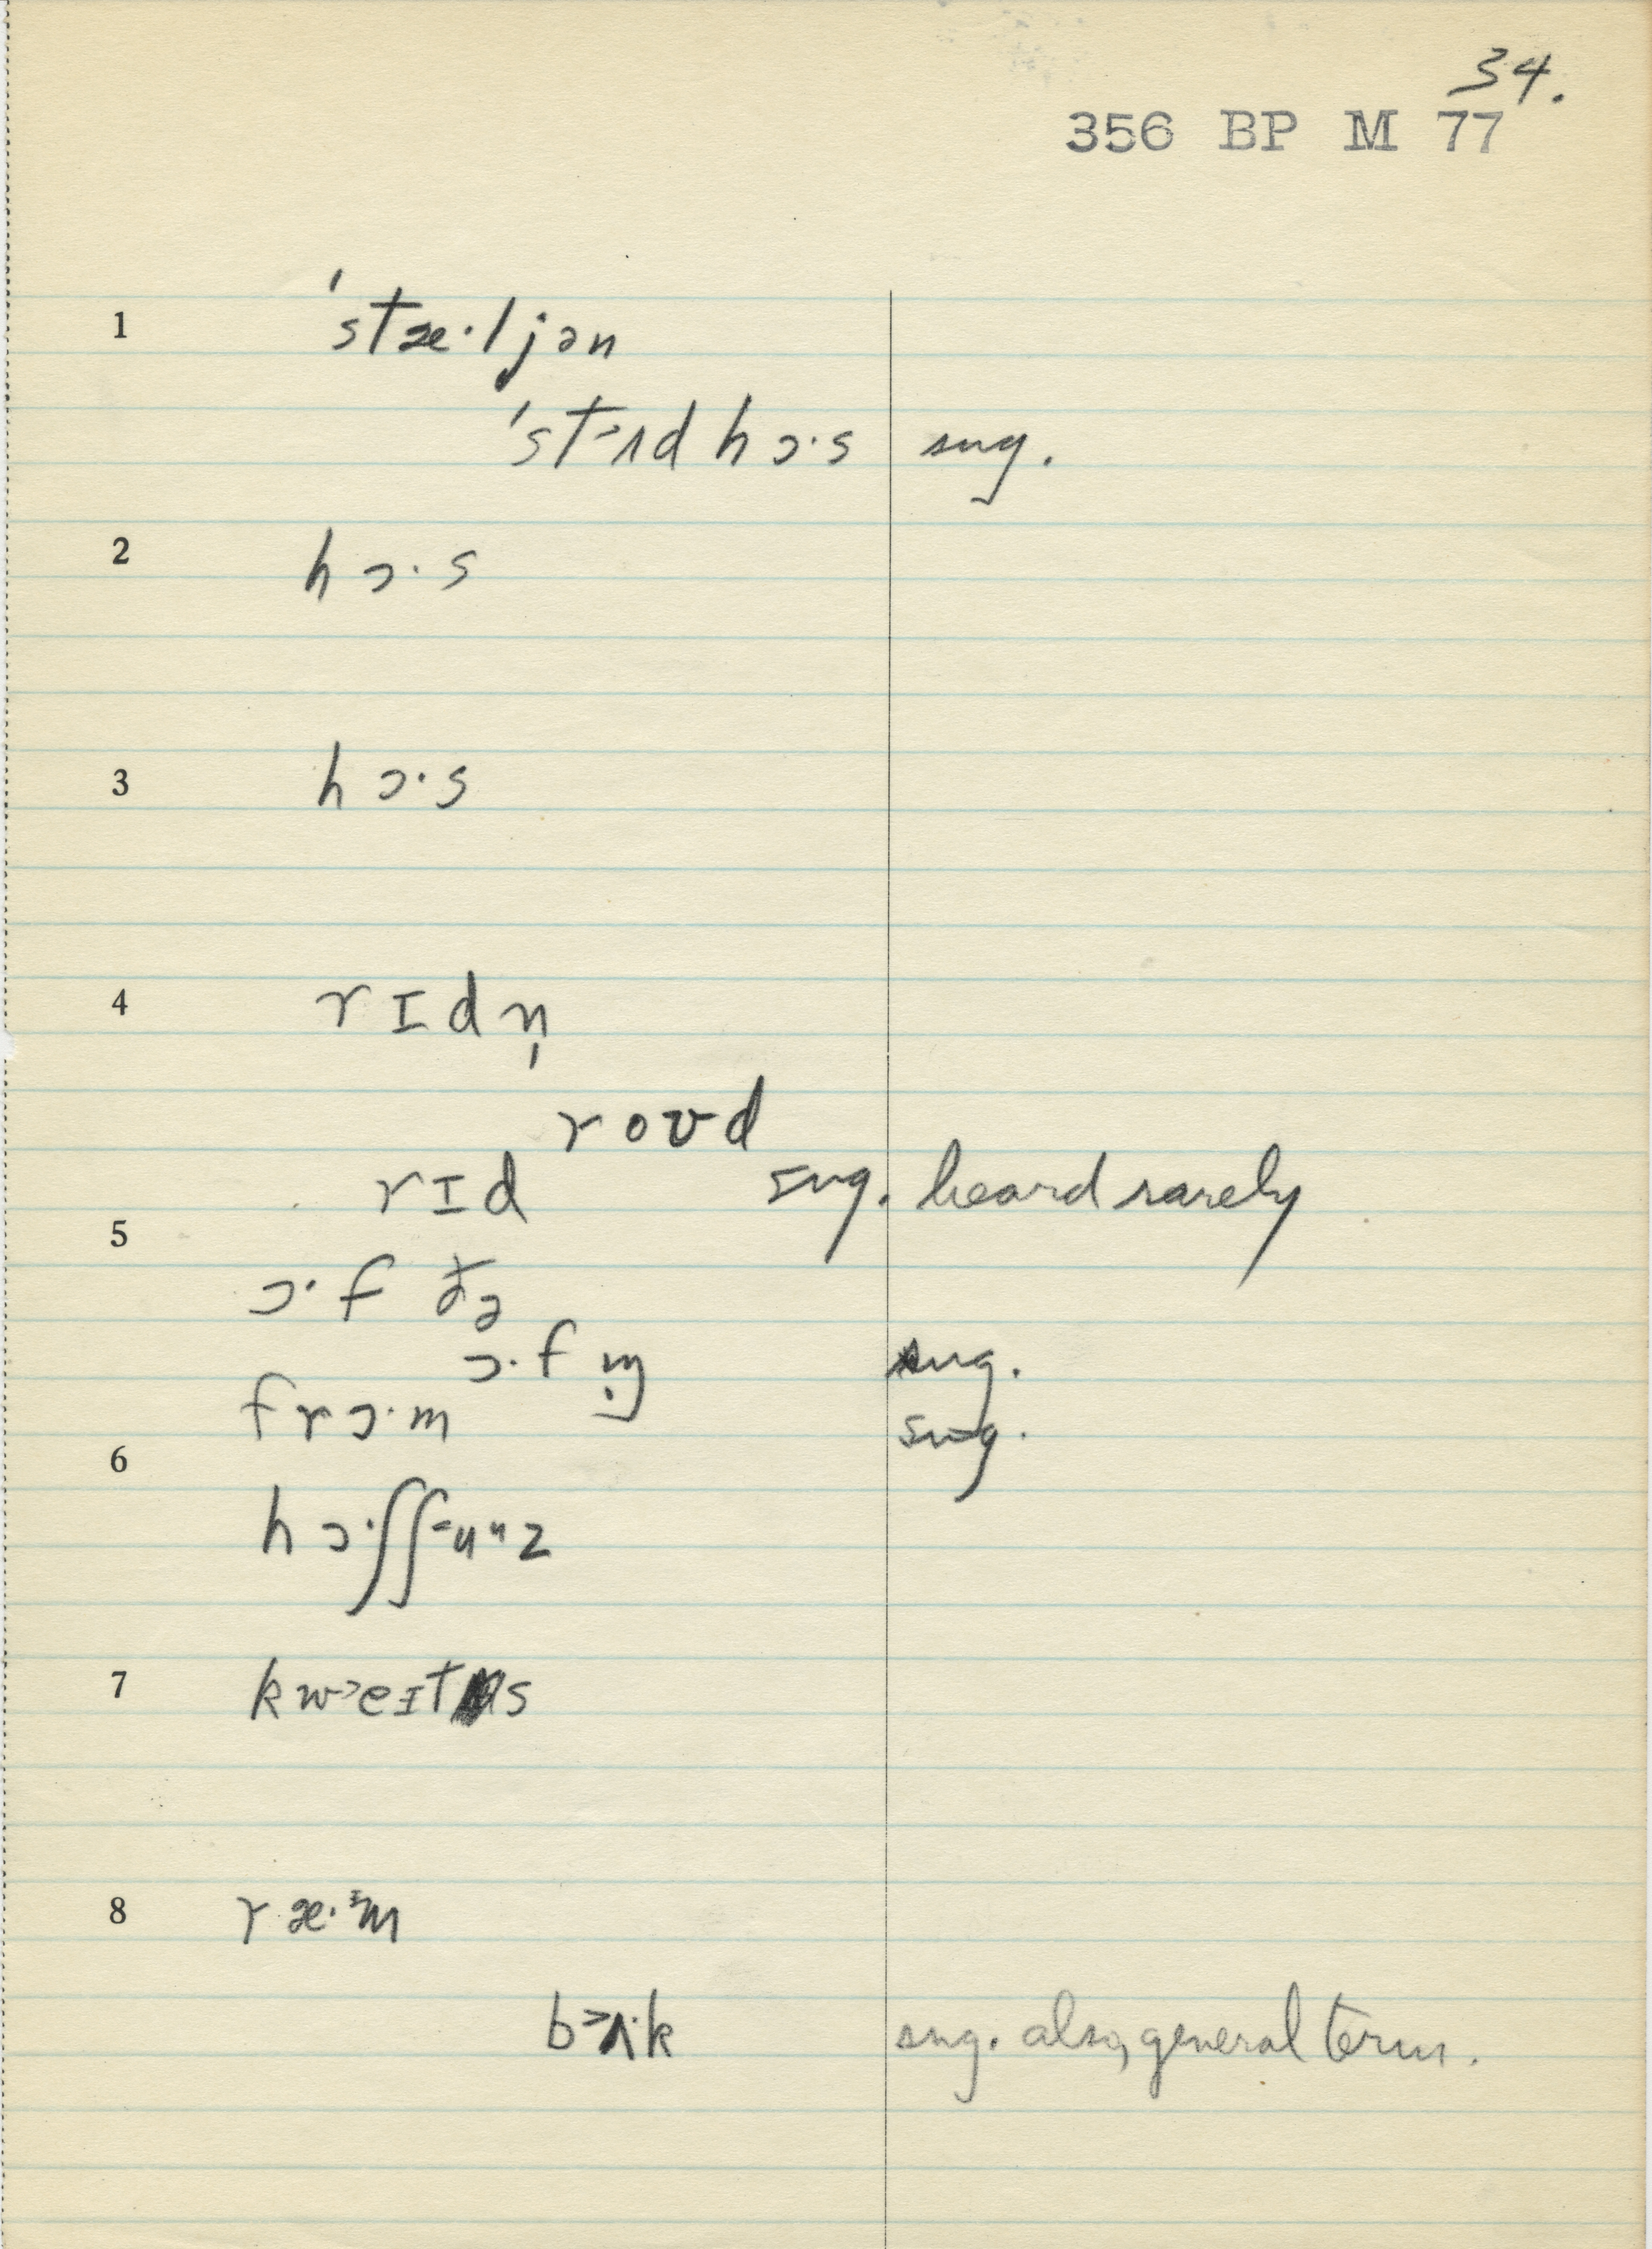 34.
356 BP M 77
1 ˈstæ·ljən
ˈst˃ʌd hɔ·s sug.
2 hɔ·s
3 hɔ·s
4 rɪdn̩
roʊd
rɪd sug. heard rarely
5
ɔ·f ðə
ɔ·f sug.
frɔ·m sug.
6
hɔ·ʃʃ˂uᵘz
7 kw˃eɪts
8 ræ·ᵋm
b˃ʌ·k sug. also, general term.